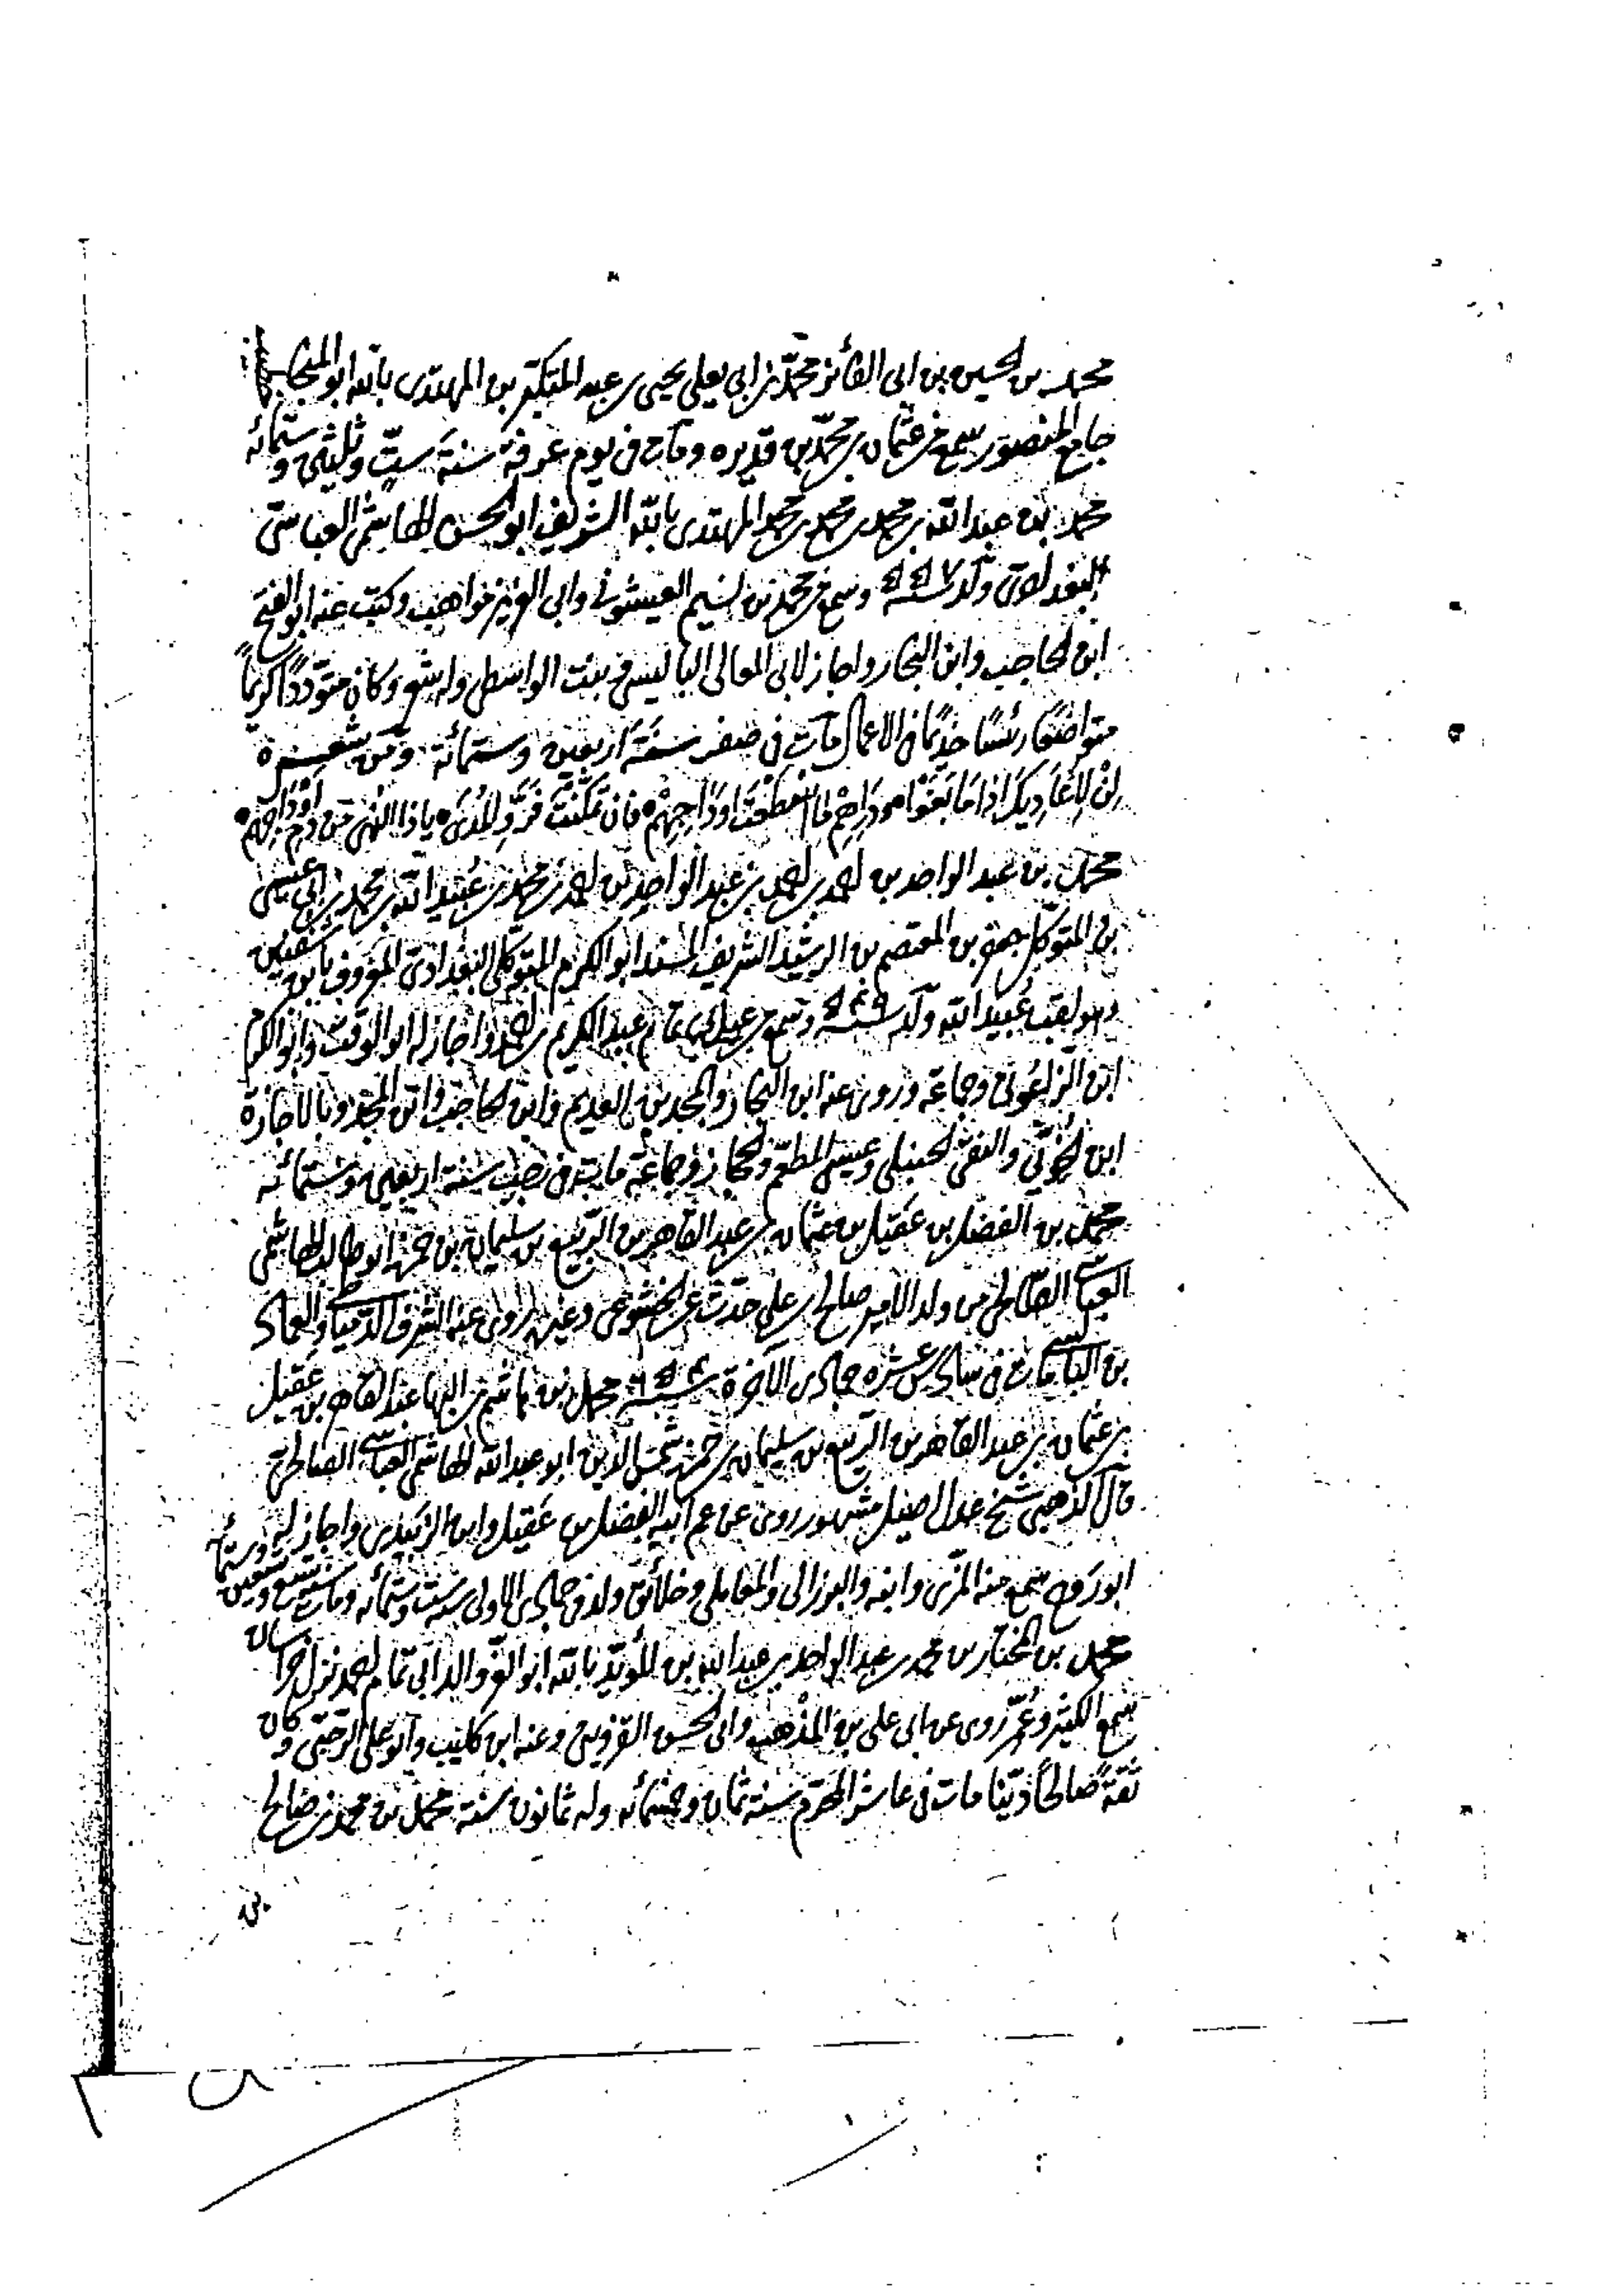 محمد بن الحسين بن ابى الفائز محمد بن ابى يعلى يحيى بن عبد المتكبر بن المهتدى بالله ابو المنجا
جامع المنصور سمع من عثمان بن محمد بن قديره ومات فى يوم عرفة سنة ست وثلثين وستمائه
محمد بن عبد الله بن محمد بن محمد بن محمد المهتدى بالله الشريف ابو الحسن الهاشمى العباسى
البغدادى ولد سنة وسمع من محمد بن نسيم العيشونى وابى العز بن مواهب وكتب عنه ابو الفتح
ابن الحاجب وابن النجار واجاز لابى المعالى البالسى وبنت الواسطى وله شعر وكان متوددا كريما
متواضعا رئسا خدم فى الاعمال مات فى صفر سنة اربعين وستمائة ومن شعره
لن لاعاديك اذا ما بغوا فان تمكنت فرو المدى يا ذا النهى من دم اوداجهم
محمد بن عبد الواحد بن احمد بن احمد بن عبد الواحد بن احمد بن محمد بن عبيد الله بن محمد بن ابى عيسى
بن المتوكل جعفر بن المعتصم بن الرشيد الشريف المسند ابو الكرم المتوكلى البغدادى المعروف بابن شفنين
وهو لقب عبيد الله ولد سنة ٥٤٩ وسمع من عبد الكريم بن احمد واجاز له ابو الوقت وابو الكرم
ابن الزاغونى وجماعة وروى عنه ابن النجار والمجد بن العديم وابن الحاجب وابن المجد وبالاجازة
ابن الخوئى والتقى الحنبلى وعيسى المطعم والحجار وجماعة مات فى رجب سنة اربعين وستمائه
محمد بن الفضل بن عقيل بن عثمان بن عبد القاهر بن الربيع بن سليمان بن حمزه ابو طالب الهاشمى
العباسى الصالحى من ولد الامير صالح بن على حدث عن الخشوعى وغيره روى عنه الشرف الدمياطى والعماد
بن البالسى مات فى سادس عشره جمادى الآخرة سنة ٦٥٤ محمد بن هاشم بن البها عبد القاهر بن عقيل
بن عثمان بن عبد القاهر بن الربيع بن سليمان بن حمزه شمس الدين ابو عبد الله الهاشمى العباسى الصالحى
قال الذهبى شيخ عدل اصيل مشهور روى عن عم ابيه الفضل بن عقيل وابن الزبيدى واجاز له
ابو روح سمع منه المزى وابنه والبرزالى والمقاتلى وخلائق ولد فى جمادى الاولى سنة ست وستمائه ومات سنة تسع وتسعين وستمائه
محمد بن المختار بن محمد بن عبد الواحد بن عبد الله بن المؤيد بالله ابو العز والد ابى تمام احمد نزيل خراسان
سمع الكثير وعمر روى عن ابى على بن المذهب وابى الحسن القزوينى وعنه ابن كليب وابو على الرحبى وكان
ثقة صالحا دينا مات فى عاشر المحرم سنة ثمان وخمسمائه وله ثمانون سنة محمد بن محمد بن صالح
بن